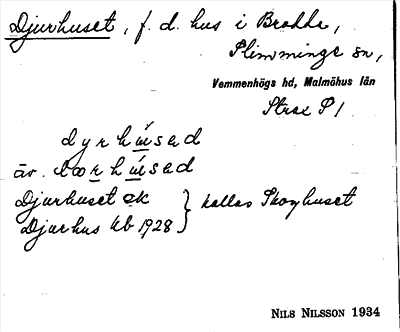 Djurhuset, f. d. hus i Bredda,
Slimminge sn,
Vemmenhögs hd, Malmöhus län
Strax P1
dyrhúsed
äv. hused
Djurhuset ek } kallas Skoghuset
Djurhus kb 1928
NILS NILSSON 1934